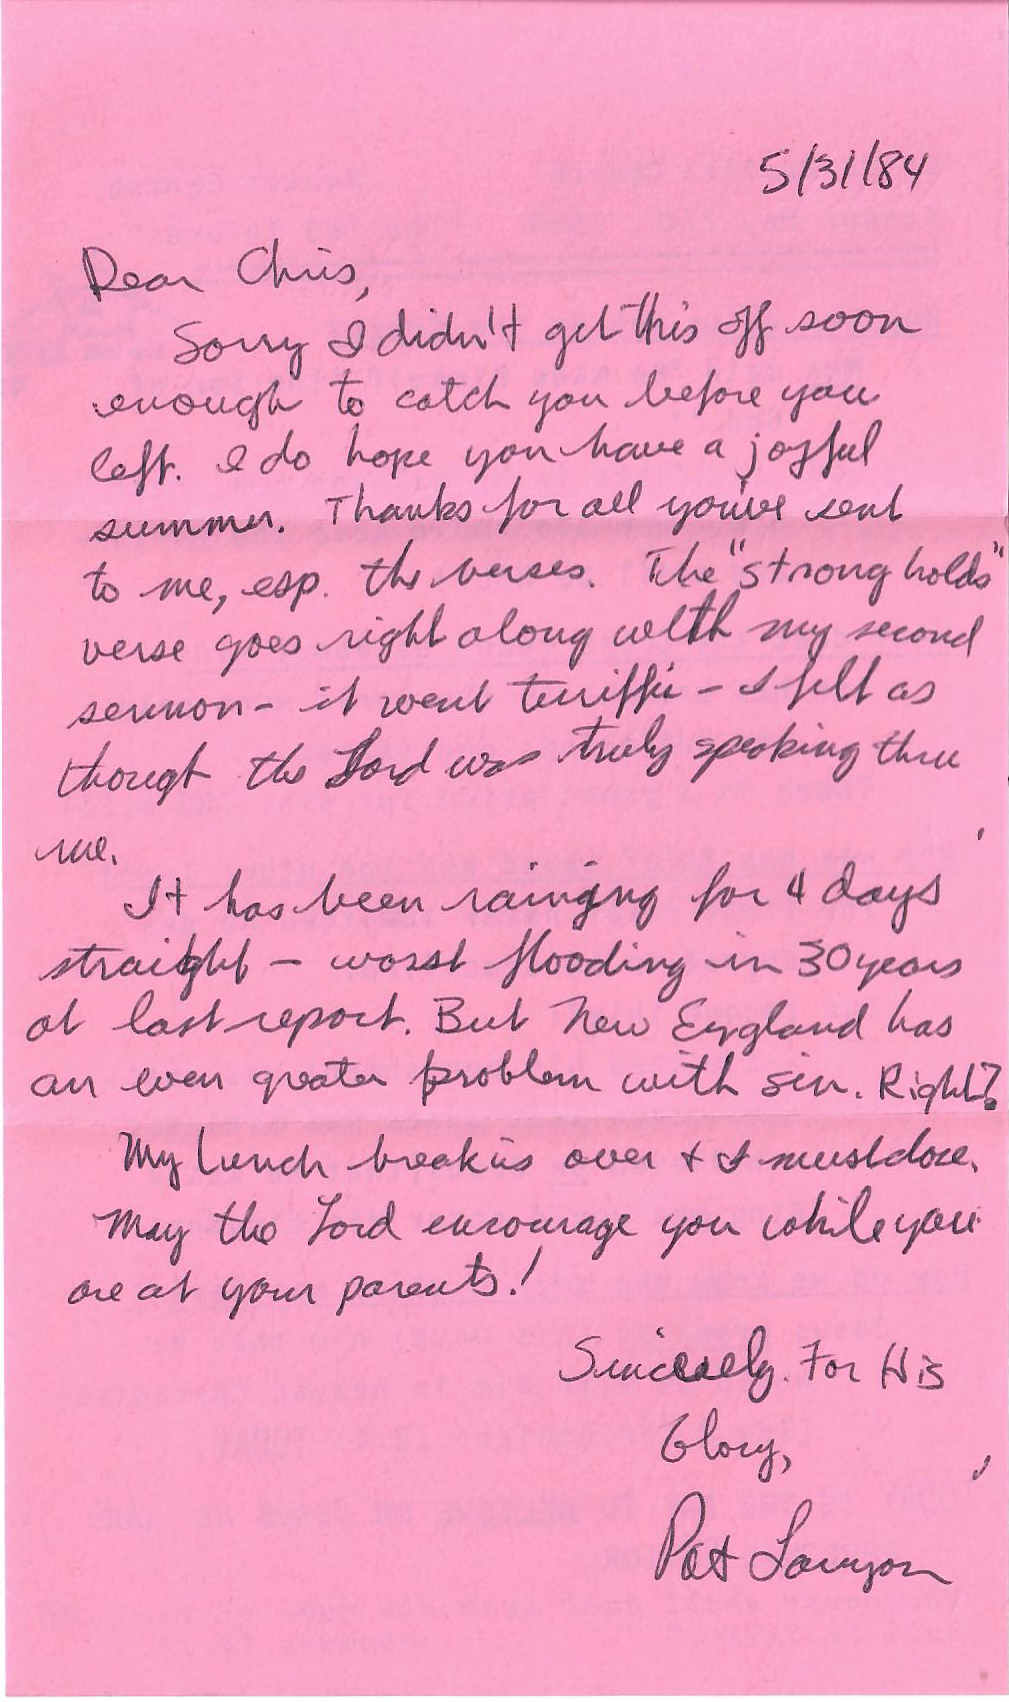 5/31/84
Dear Chris,
Sorry I didn't get this off soon
enough to catch you before you
left. I do hope you have a joyful
summer. Thanks for all you've sent
to me, esp. the verses. The "strong holds"
verse goes right along with my second
sermon - it went teriffic - I felt as
though the Lord was truly speaking thru
me.
It has been rainging for 4 days
straight - worst flooding in 30 years
at last report. But New England has
an even greater problem with sin. Right?
My lunch break is over + I must close.
May the Lord encourage you while you
are at your parents!
Sincerely. For His
Glory,
Pat